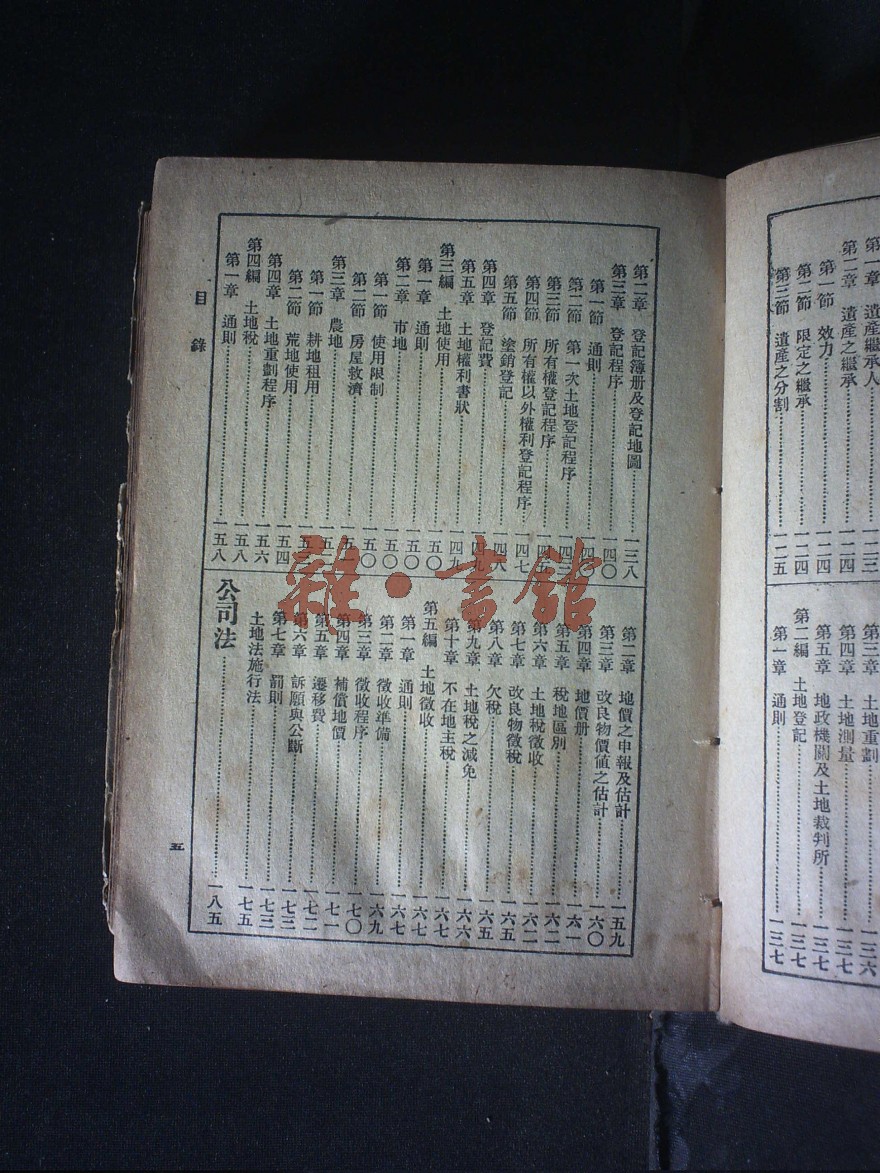 第一章 遺產繼承人 一二三
第二章 遺產之繼承 一二四
第一節 效力 一二四
第二節 限定之繼承 一二四
第三節 遺產之分割 一二五
第三章 土地重劃 一三六
第四章 土地測量 一三七
第五章 地政機關及土地裁判所 一三七
第二編 土地登記 一三七
第一章 通則 一三七
第二章 登記簿册及登記地圖 一三八
第三章 登記程序 一四〇
第一節 通則 一四〇
第二節 第一次土地登記程序 一四三
第三節 所有權登記程序 一四五
第四節 所有權以外權利登記程序 一四七
第五節 塗銷登記 一四八
第四章 登記費 一四九
第五章 土地權利書狀 一四九
第三編 土地使用 一五〇
第一章 通則 一五〇
第二章 市地 一五〇
第一節 使用限制 一五〇
第二節 房屋救濟
第三章 農地
第一節 耕地租用
第二節 荒地使用 一五四
第四章 土地重劃程序 一五六
第四編 土地稅 一五八
第一章 通則 一五八
第二章 地價之申報及估計 一五九
第三章 改良物價値之估計 一六〇
第四章 地價册 一六一
第五章 稅地區別 一六二
第六章 土地稅徵收 一六二
第七章 改良物徵稅 一六五
第八章 欠稅 一六五
第九章 土地稅之減免 一六六
第十章 不在地主稅 一六七
第五編 土地徵收 一六七
第一章 通則 一六七
第二章 徵收準備 一六九
第三章 徵收程序 一七〇
第四章 補償地價 一七一
第五章 遷移費 一七二
第六章 訴願與公斷 一七三
第七章 罰則 一七三
土地法施行法 一七五
公司法 一八五
目錄
五
雜·書館